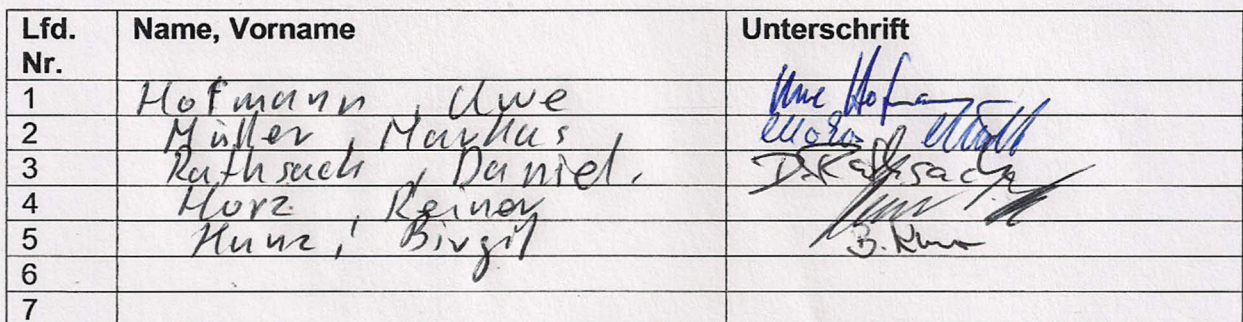 Lfd. Nr. Name, Vorname Unterschrift
1 Hofmann, Uwe Uwe Hofmann
2 Müller, Markus
3 Rathsack, Daniel, D. Rathsack
4 Horz, Reiner
5 Kunz, Birgit B. Kunz
6
7